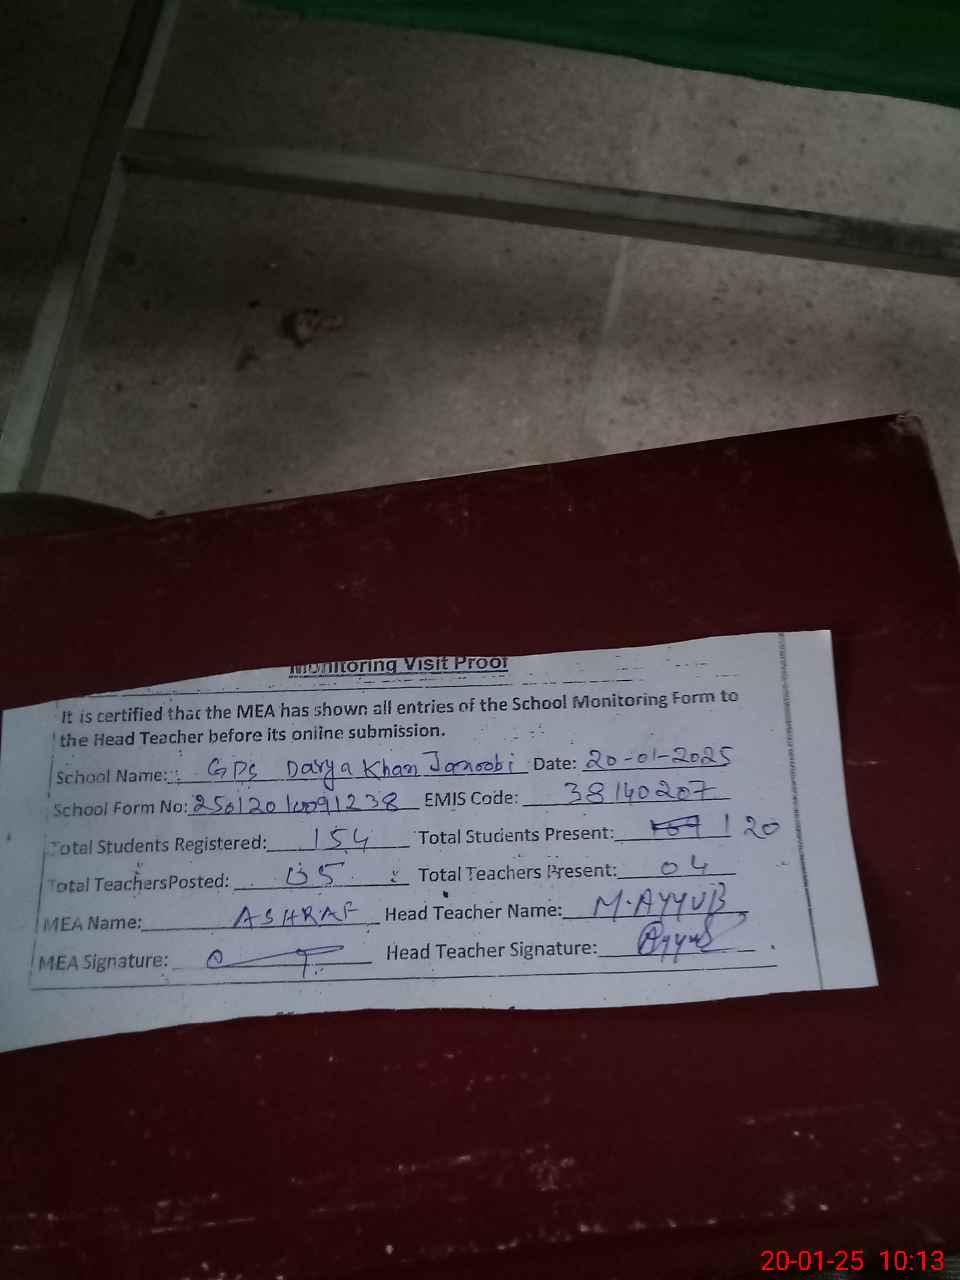 Monitoring Visit Proof
It is certified that the MEA has shown all entries of the School Monitoring Form to
the Head Teacher before its online submission.
School Name: GPS Darya Khan Janoobi Date: 20-01-2025
School Form No: EMIS Code: 38140207
Total Students Registered: 154 Total Students Present: 120
Total TeachersPosted: 05 Total Teachers Present: 04
MEA Name: ASHRAF Head Teacher Name: M.AYYUB
MEA Signature: Head Teacher Signature: Ayyub
20-01-25 10:13